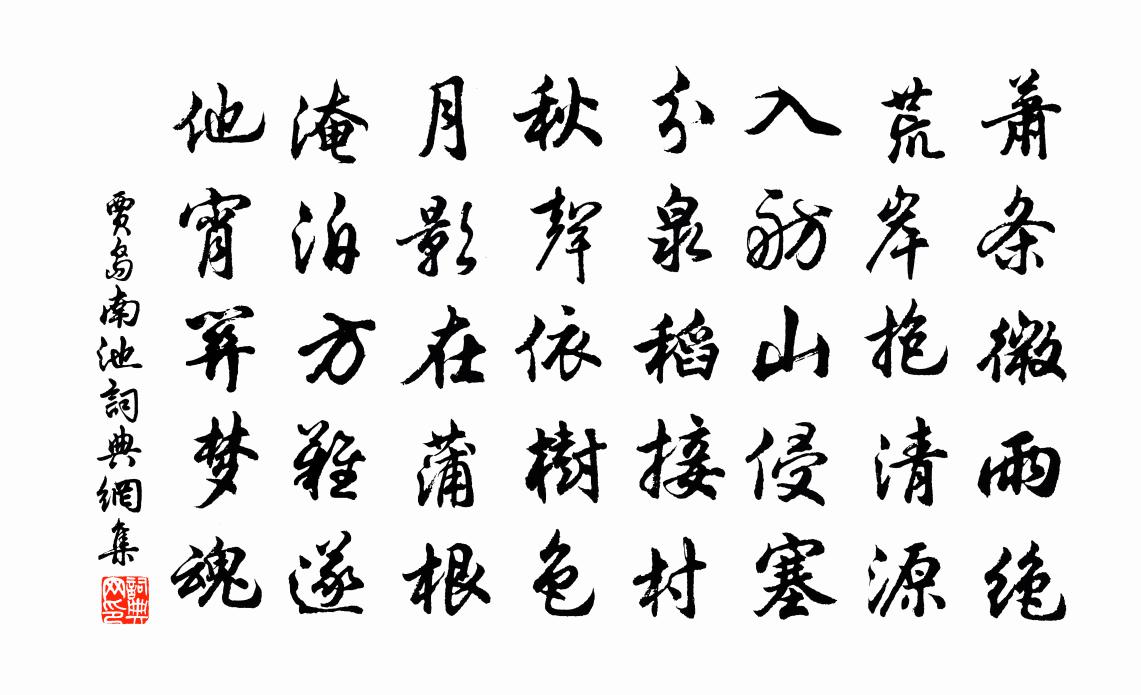 蕭条微雨绝
荒岸抱清源
入舫山侵塞
分泉稻接村
秋聲依樹色
月影在蒲根
淹泊方難遂
他宵關梦魂
賈島南池詞典網集
詞典网印